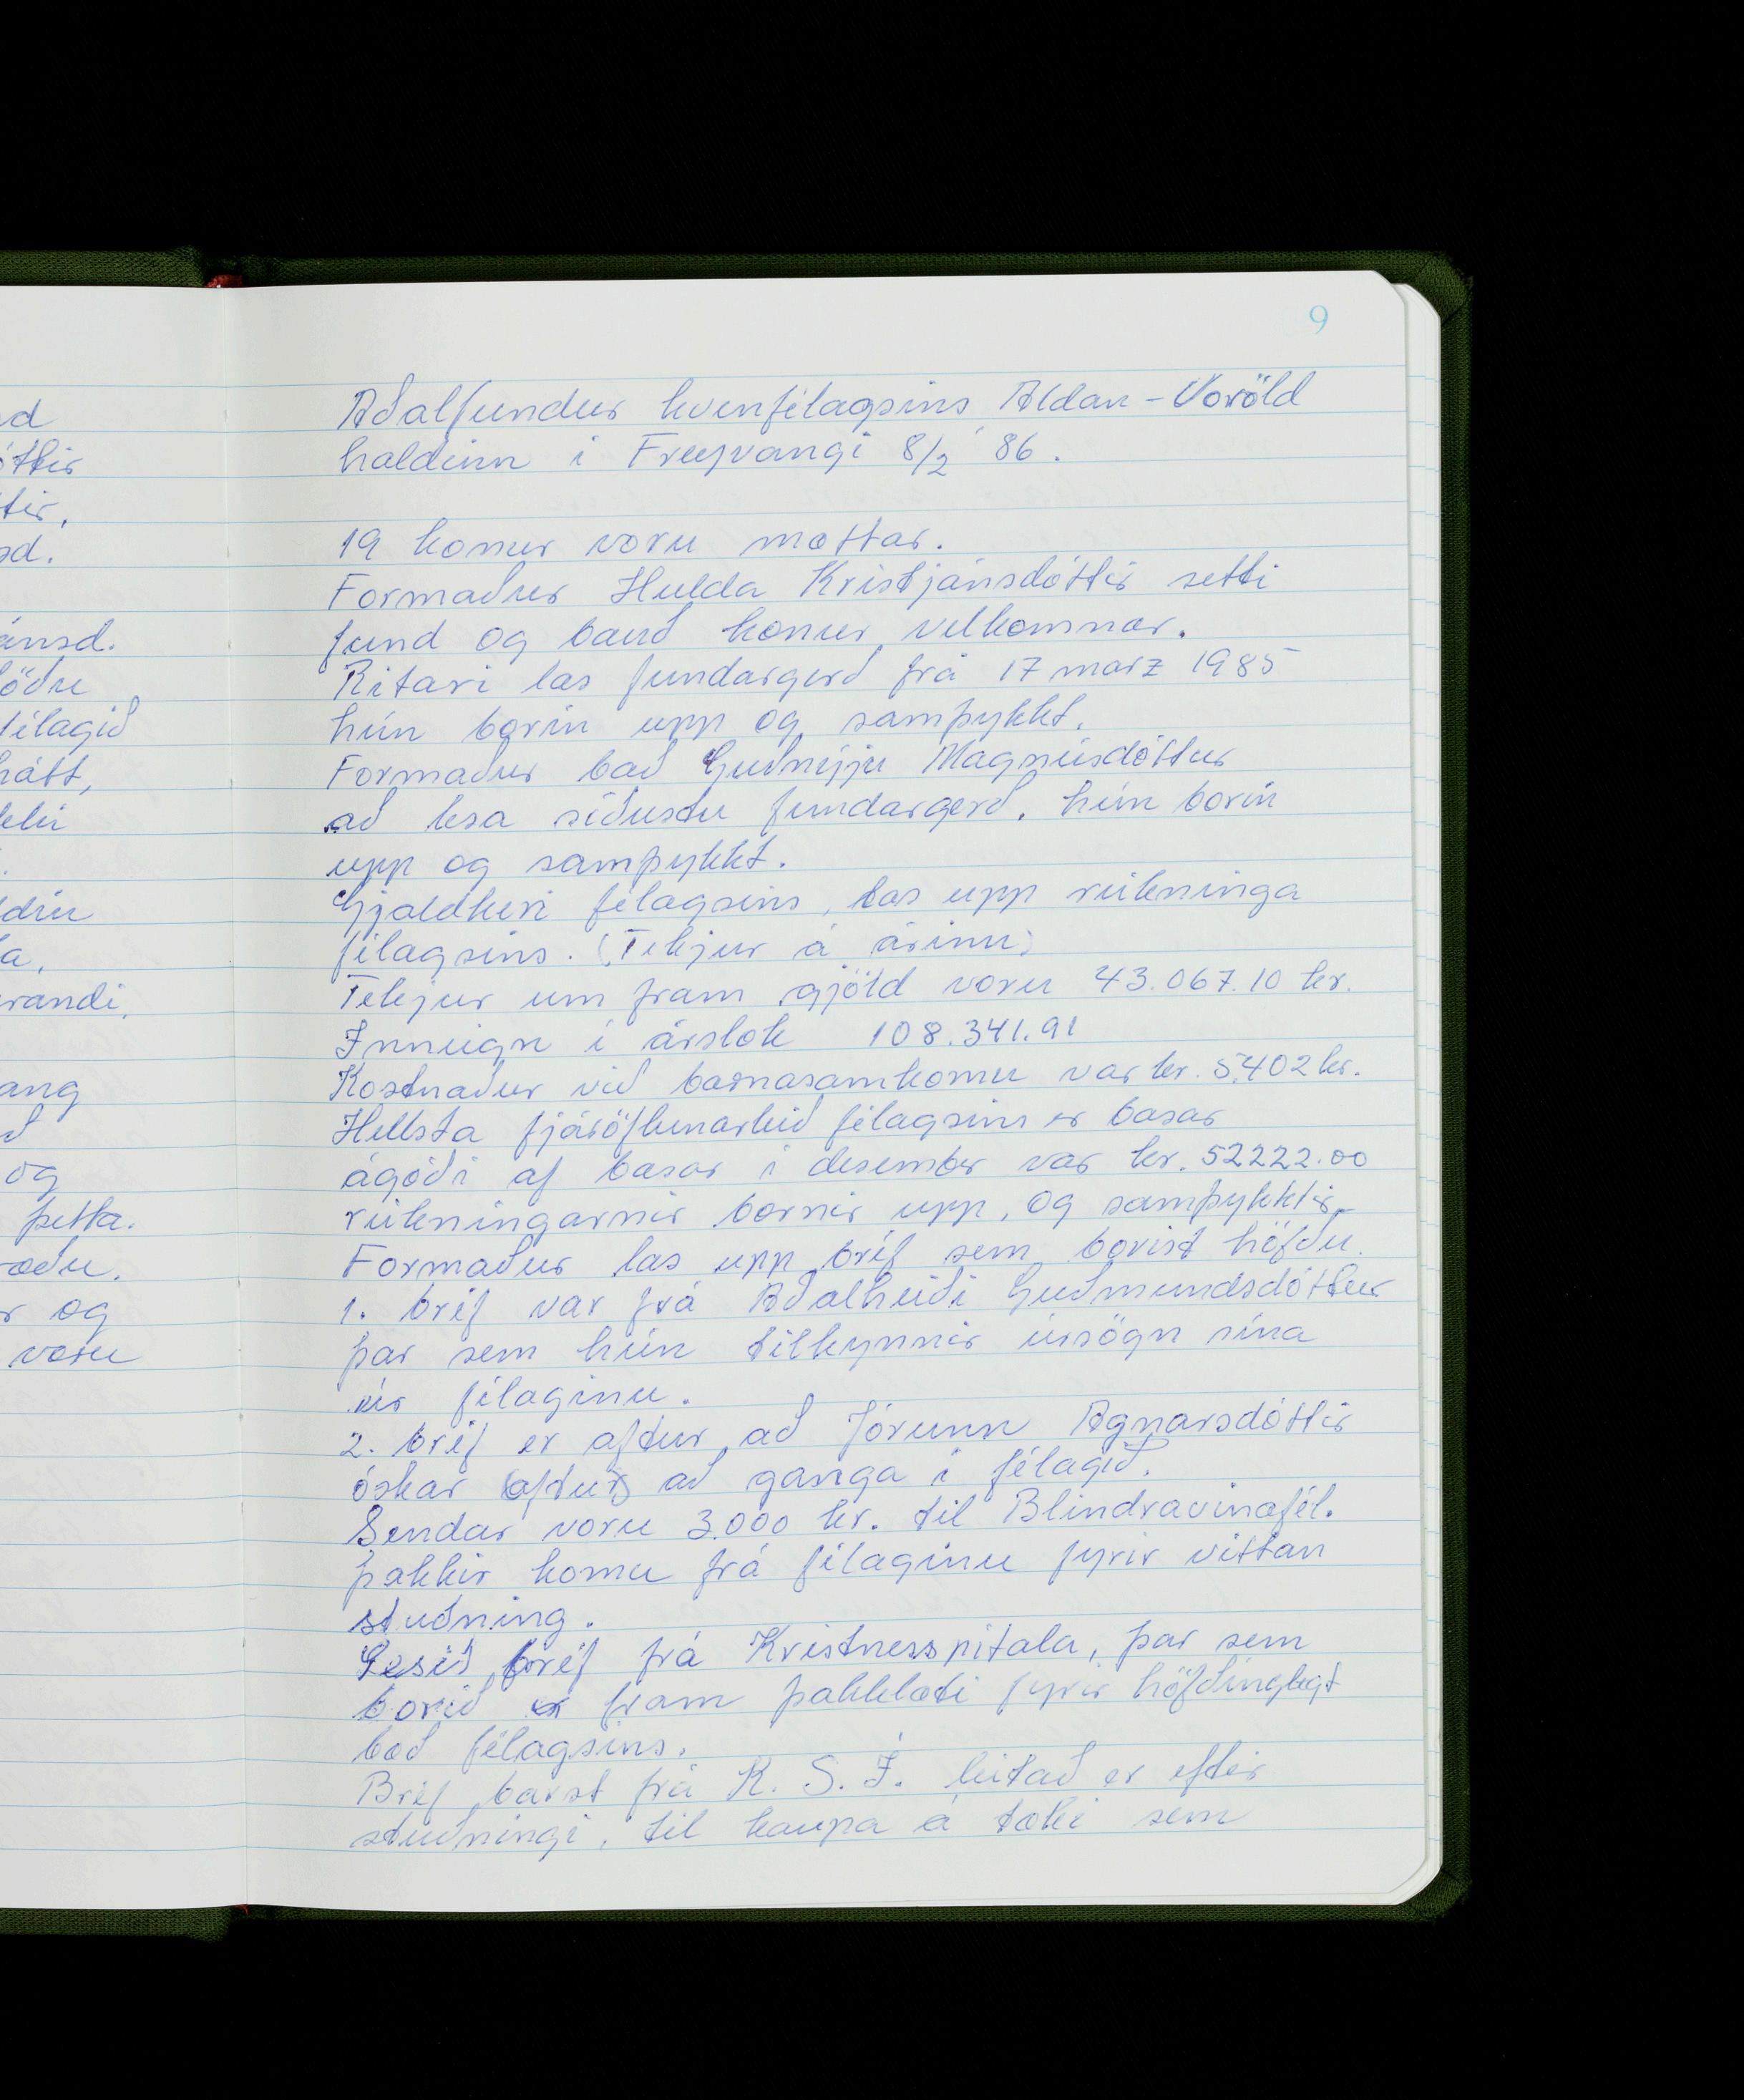 9
Aðalfundur kvenfélagsins Aldan - Voröld
haldinn í Freyvangi 8/2 '86.
19 konur voru mættar.
Formaður Hulda Kristjánsdóttir setti
fund og bauð konur velkomnar.
Ritari las fundargerð frá 17 marz 1985
hún borin upp og samþykkt.
Formaður bað Guðnýju Magnúsdóttur
að lesa síðustu fundargerð, hún borin
upp og samþykkt.
Gjaldkeri félagsins, las upp reikninga
félagsins. (Tekjur á árinu)
Tekjur um fram gjöld voru 43.067.10 kr.
Inneign í árslok 108.341.91
Kostnaður við barnasamkomu var kr. 5.402 kr.
Hellsta fjáröflunarleið félagsins er basar
ágóði af basar í desember var kr. 52222.00
reikningarnir bornir upp, og samþykktir
Formaður las upp bréf sem borist höfðu.
1. bréf var frá Aðalheiði Guðmundsdóttur
þar sem hún tilkynnir úrsögn sína
úr félaginu.
2. bréf er aftur að Jórunn Agnarsdóttir
óskar (aftur) að ganga í félagið.
Sendar voru 3.000 kr. til Blindravinafél.
þakkir komu frá félaginu fyrir veittan
stuðning.
Lesið bréf frá Kristnesspítala, þar sem
borið er fram þakklæti fyrir höfðinglegt
boð félagsins.
Bréf barst frá K. S. Í. leitað er eftir
stuðningi, til kaupa á tæki sem
d
óttir
tir,
sd.
ánsd.
löðu
félagið
hátt,
ldin
a,
randi,
ang
ð
og
þetta.
ræðu.
r og
voru